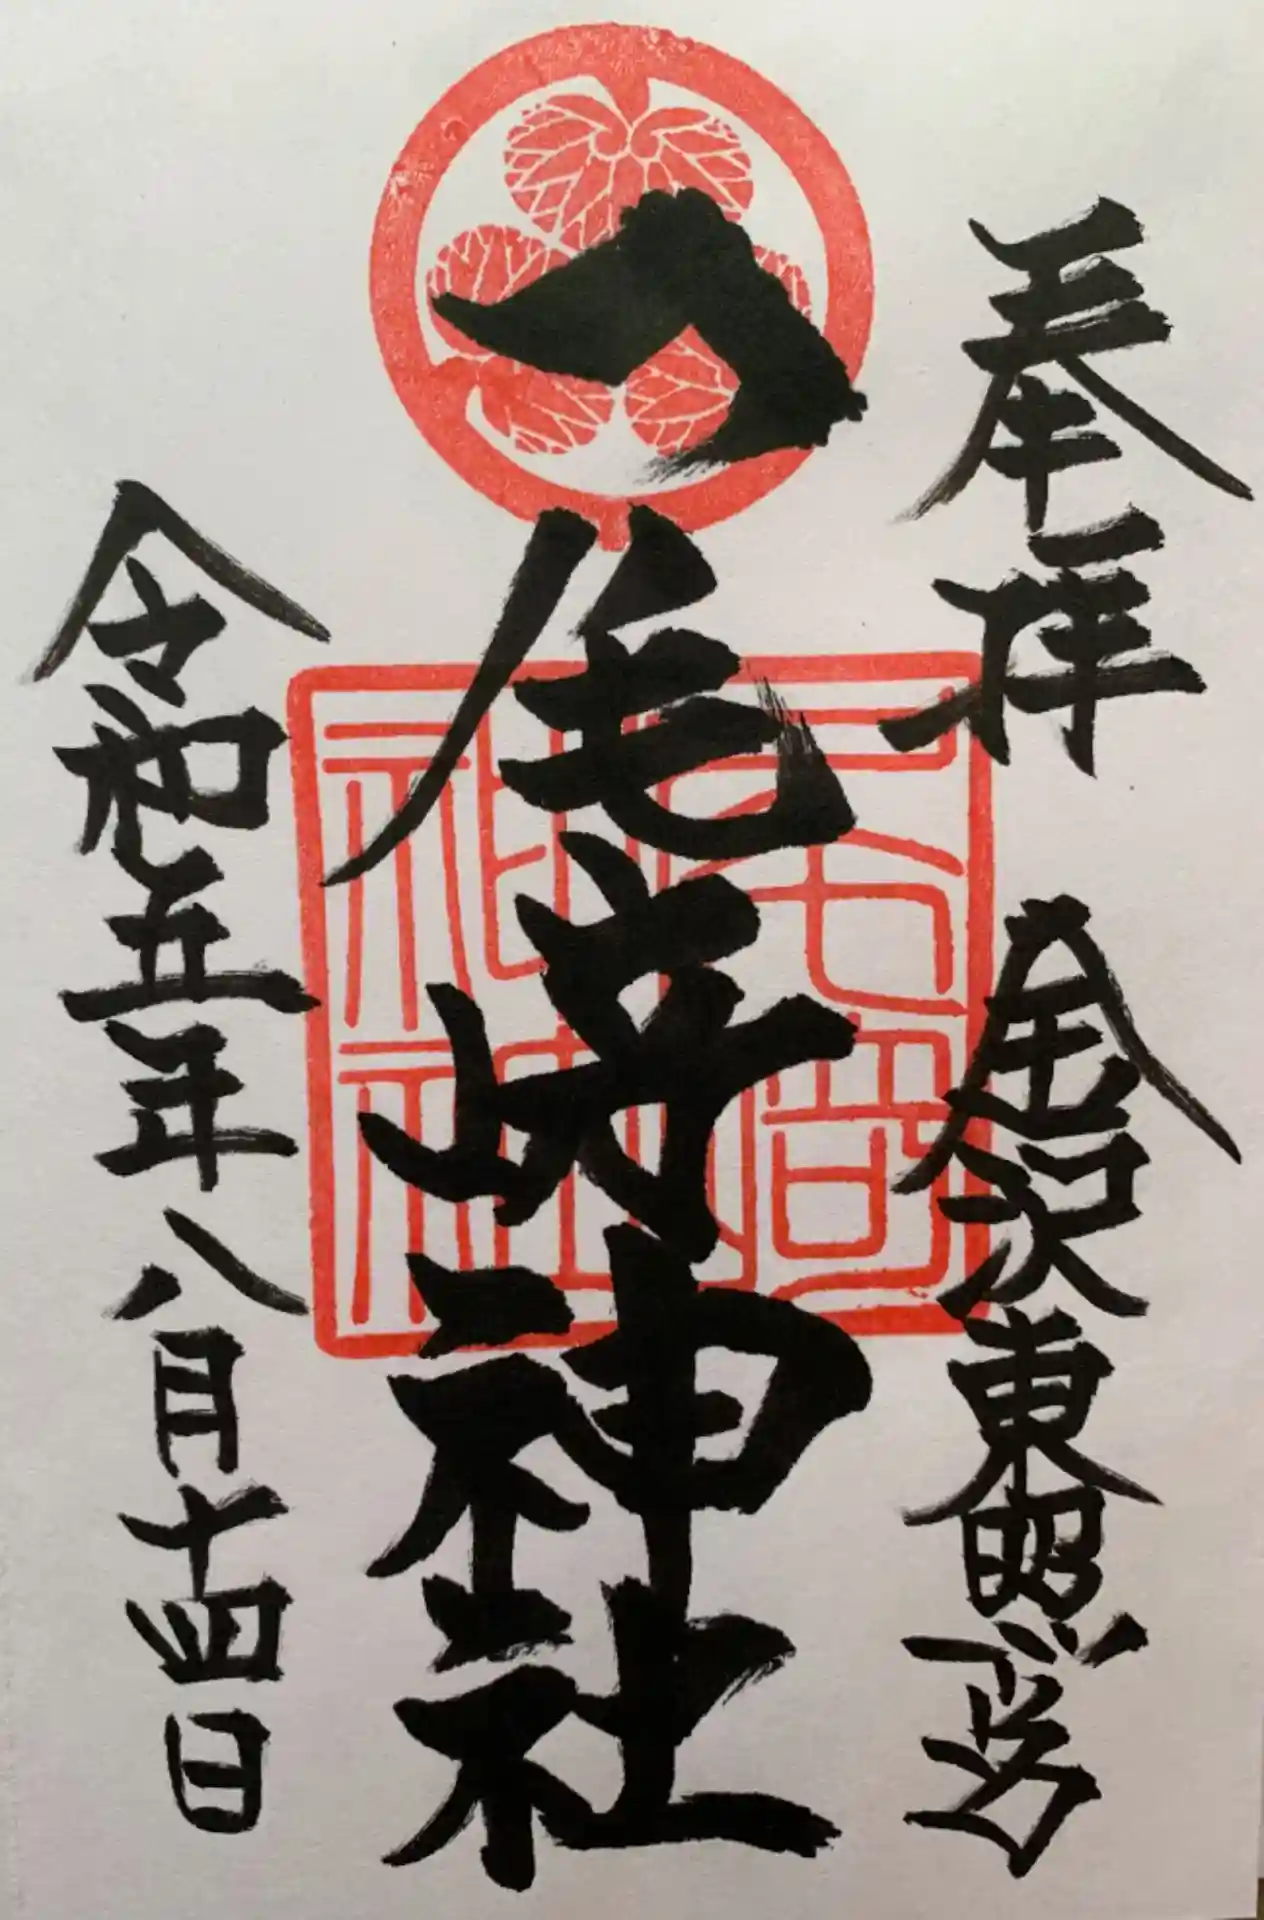 奉拝 金沢東照宮
尾崎神社
令和五年八月十四日
尾崎
神社